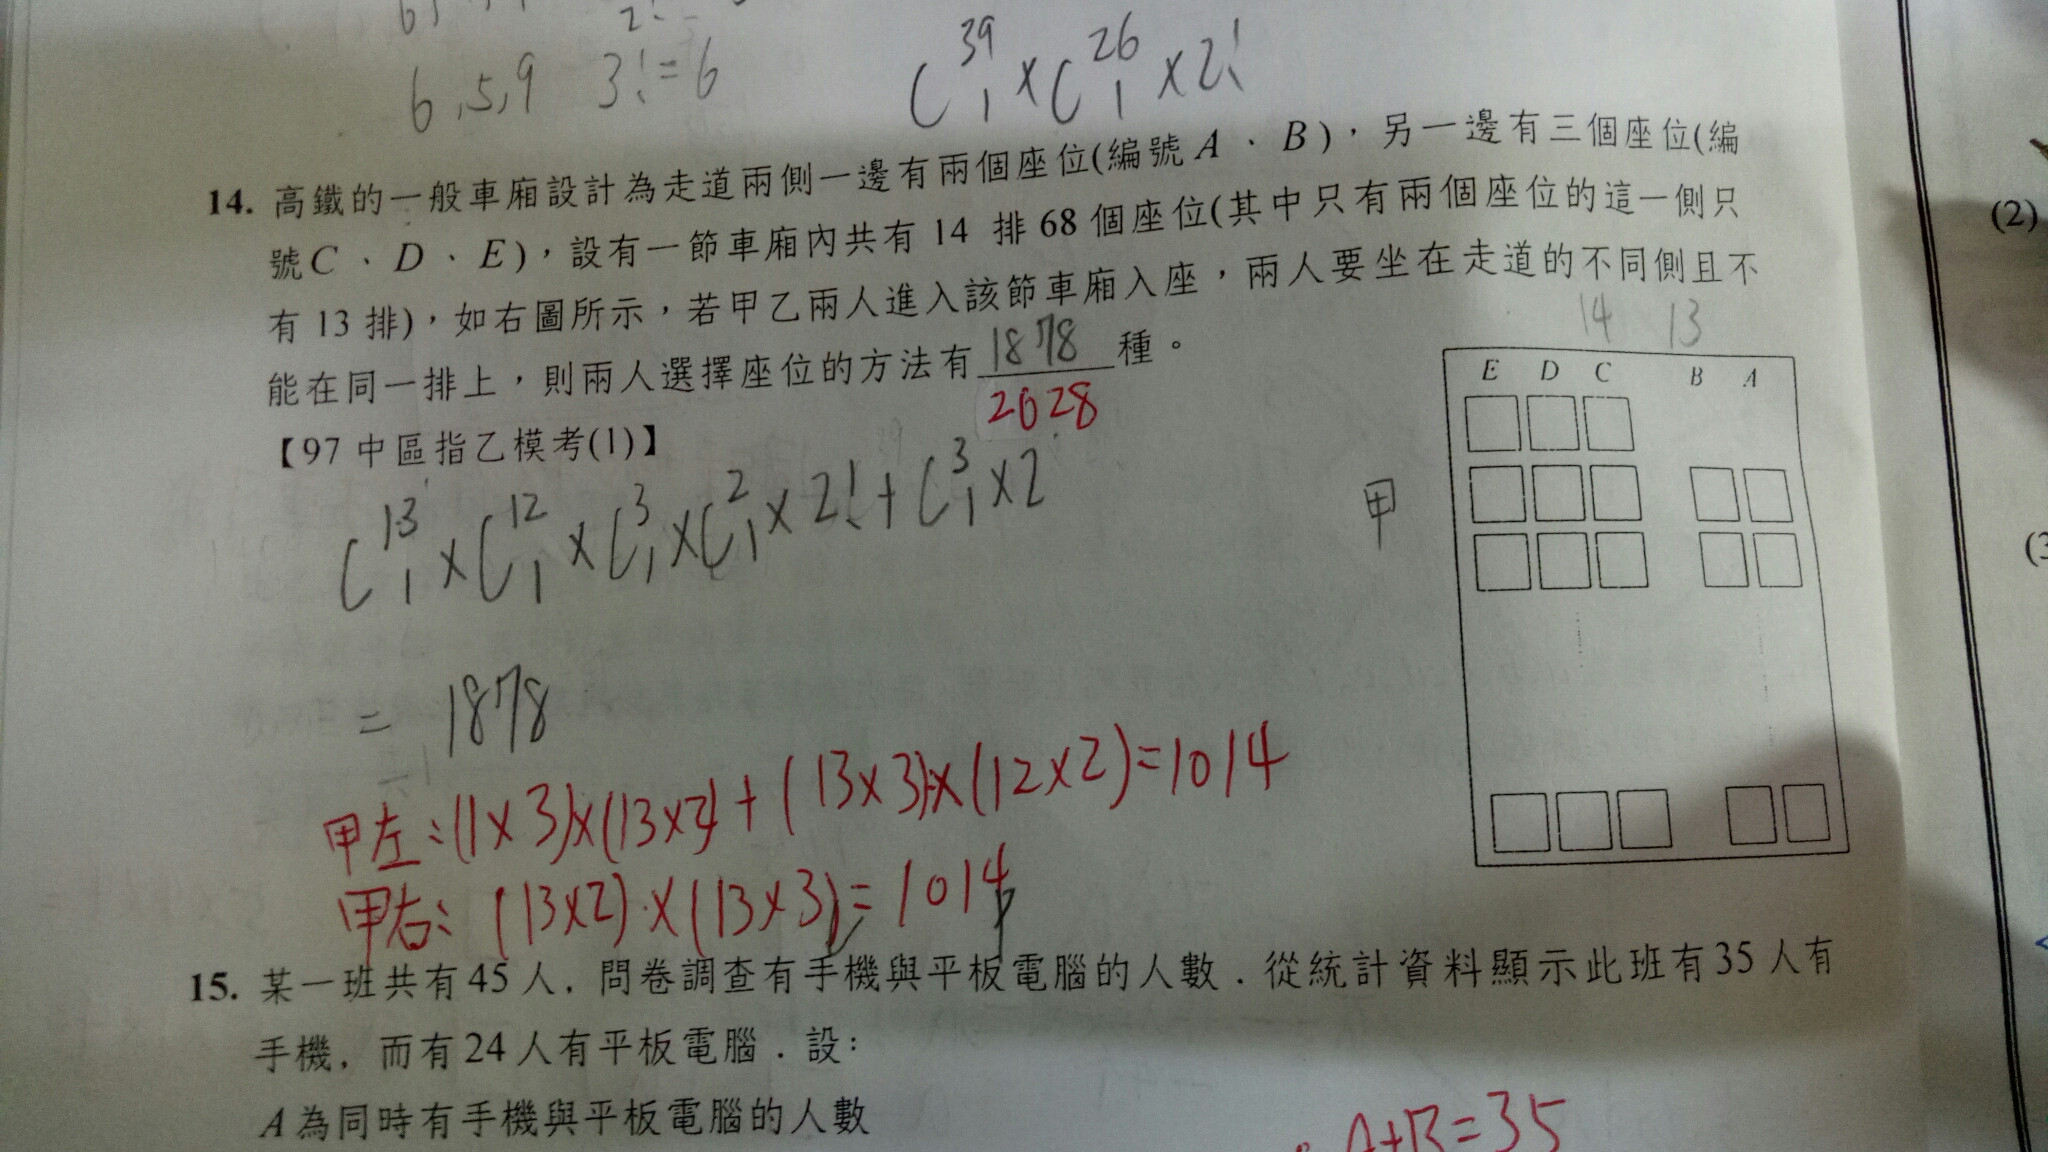 6,5,9 3!=6
C³⁹₁×C²⁶₁×2!
14. 高鐵的一般車廂設計為走道兩側一邊有兩個座位(編號A、B),另一邊有三個座位(編
號C、D、E),設有一節車廂內共有14 排68個座位(其中只有兩個座位的這一側只
有13排),如右圖所示,若甲乙兩人進入該節車廂入座,兩人要坐在走道的不同側且不
能在同一排上,則兩人選擇座位的方法有1878種。
2028
【97中區指乙模考(1)】
14 13
E D C B A
甲
C¹³₁×C¹²₁×C³₁×C²₁×2!+C³₁×2
= 1878
甲左:(1×3)×(13×2)+(13×3)×(12×2)=1014
甲右:(13×2)×(13×3)=1014
15. 某一班共有45人,問卷調查有手機與平板電腦的人數.從統計資料顯示此班有35人有
手機,而有24人有平板電腦.設:
A為同時有手機與平板電腦的人數
A+B=35
(2)